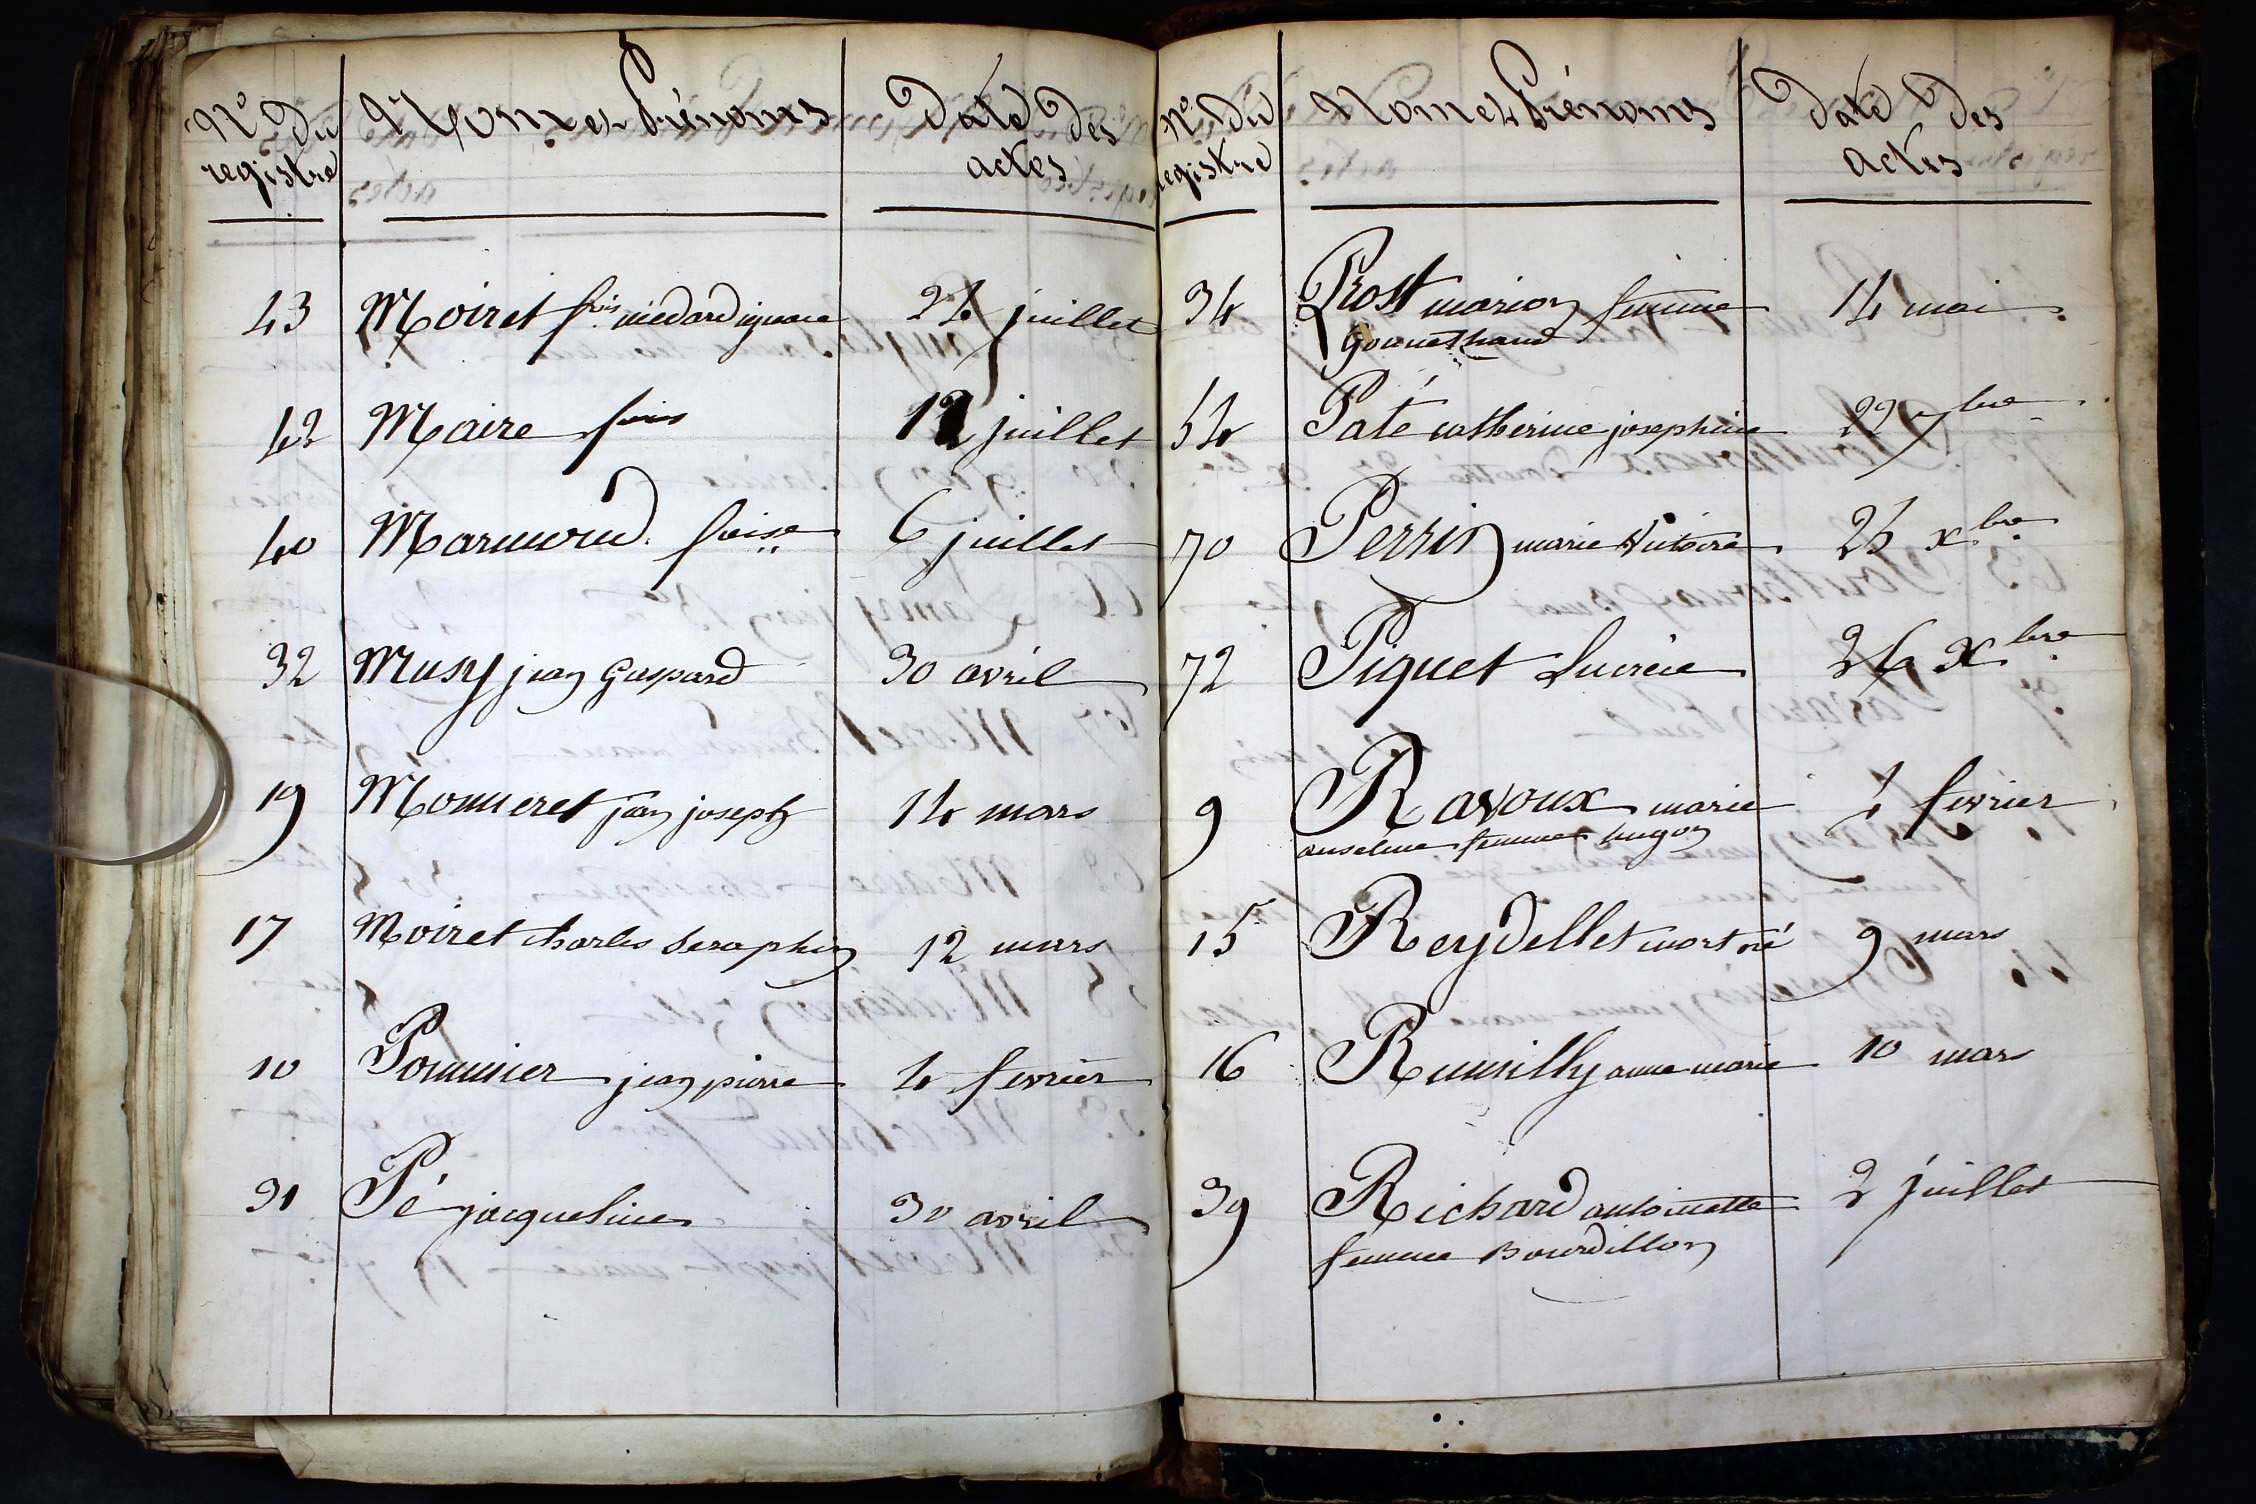 N.o du registre | Noms et Prénoms | Date des actes
43 Moiret f.ois médard ignace 24 juillet
42 Maire f.ois 12 juillet
40 Marmoud f.oise 6 juillet
32 Musy jean Gaspard 30 avril
19 Monneret jean joseph 14 mars
17 Moiret charles Seraphin 12 mars
10 Pommier jean pierre 4 fevrier
31 Pé jacqueline 30 avril
N.o du registre | Noms et Prénoms | Date des actes
34 Prost marion femme 14 mai
54 Paté catherine josephine 22 7bre
70 Perrin marie Victoire 25 xbre
72 Piquet Lucrèce 26 xbre
9 Ravoux marie 4 fevrier
anselme femme hugon
15 Reydellet mort né 9 mars
16 Rumilly anne marie 10 mars
39 Richard antoinette 2 juillet
femme Bourdillon